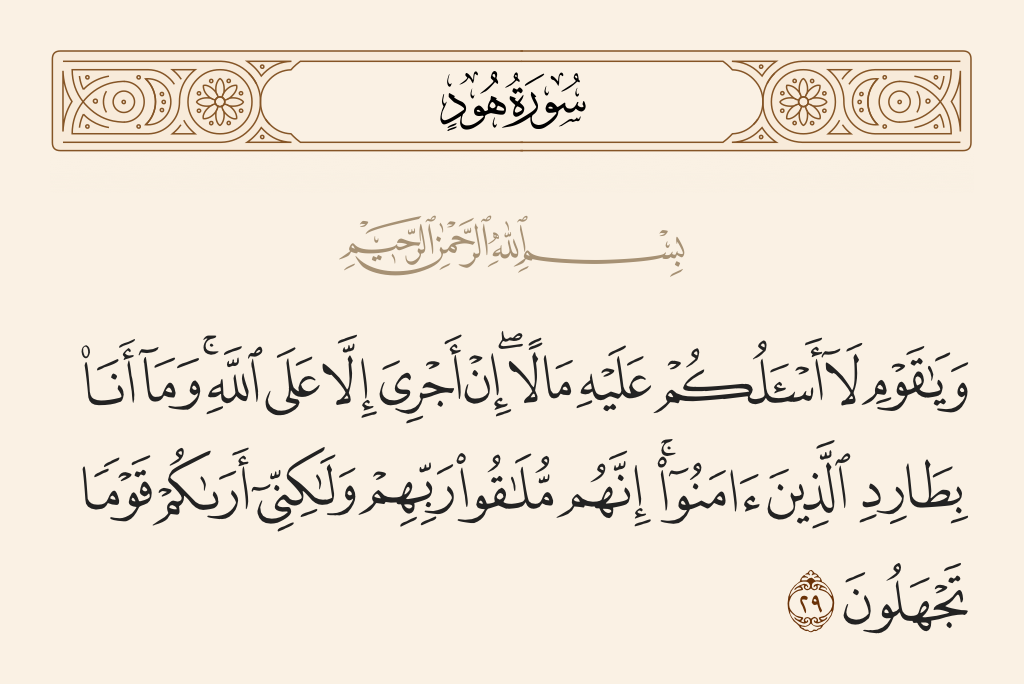 سُورَةُ هُودٍ
بِسْمِ ٱللَّهِ ٱلرَّحْمَٰنِ ٱلرَّحِيمِ
وَيَٰقَوْمِ لَآ أَسْـَٔلُكُمْ عَلَيْهِ مَالًا ۖ إِنْ أَجْرِىَ إِلَّا عَلَى ٱللَّهِ ۚ وَمَآ أَنَا۠
بِطَارِدِ ٱلَّذِينَ ءَامَنُوٓا۟ ۚ إِنَّهُم مُّلَٰقُوا۟ رَبِّهِمْ وَلَٰكِنِّىٓ أَرَىٰكُمْ قَوْمًا
تَجْهَلُونَ ٢٩